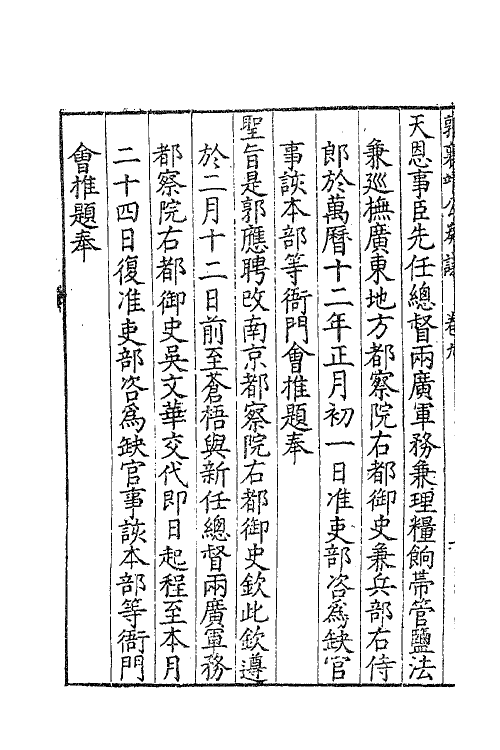 郭襄靖公奏議 卷九
天恩事臣先任總督兩廣軍務兼理糧餉帶管鹽法
兼巡撫廣東地方都察院右都御史兼兵部右侍
郎於萬曆十二年正月初一日准吏部咨為缺官
事該本部等衙門會推題奉
聖旨是郭應聘改南京都察院右都御史欽此欽遵
於二月十二日前至蒼梧與新任總督兩廣軍務
都察院右都御史吳文華交代即日起程至本月
二十四日復准吏部咨為缺官事該本部等衙門
會推題奉